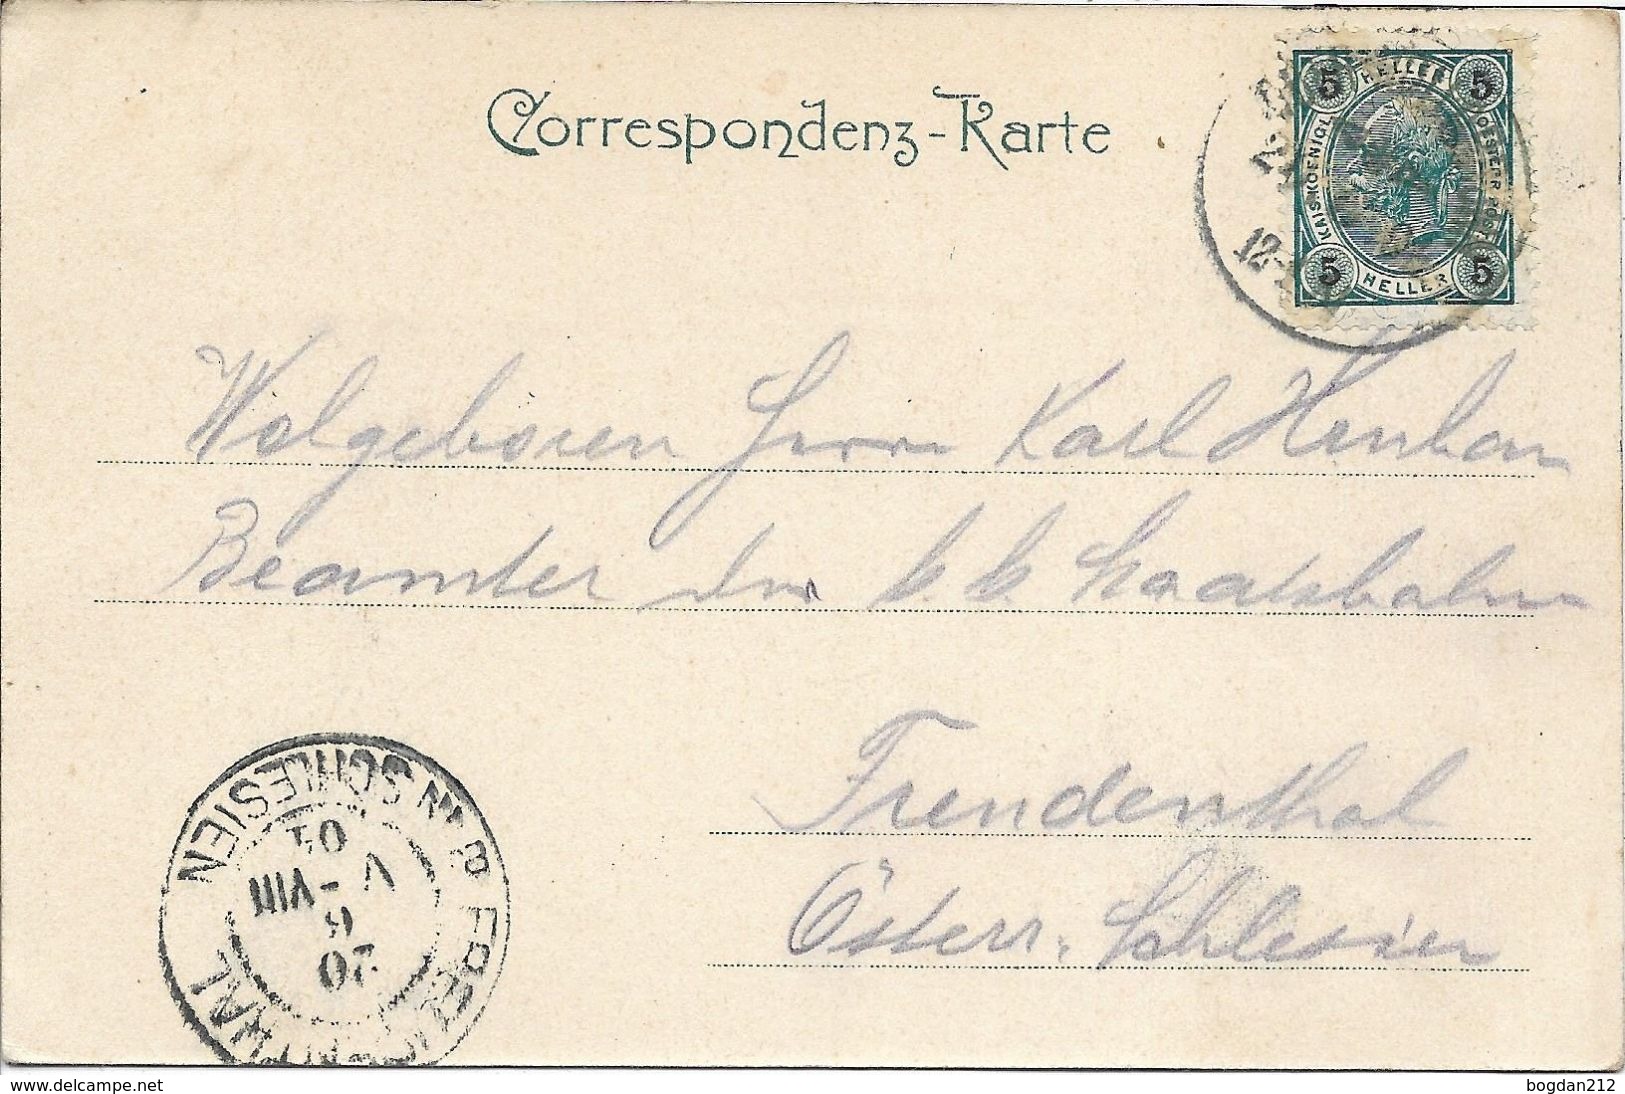 Correspondenz-Karte
5 HELLER 5
KAIS. KOENIGL. OESTERR. POST
5 HELLER 5
12
Wolgeboren Herrn Karl
Beamter der k. k. Staatsbahn
Freudenthal
Österr. Schlesien
FREUDENTHAL
SCHLESIEN
20
6
VIII
01
delcampe.net
bogdan212